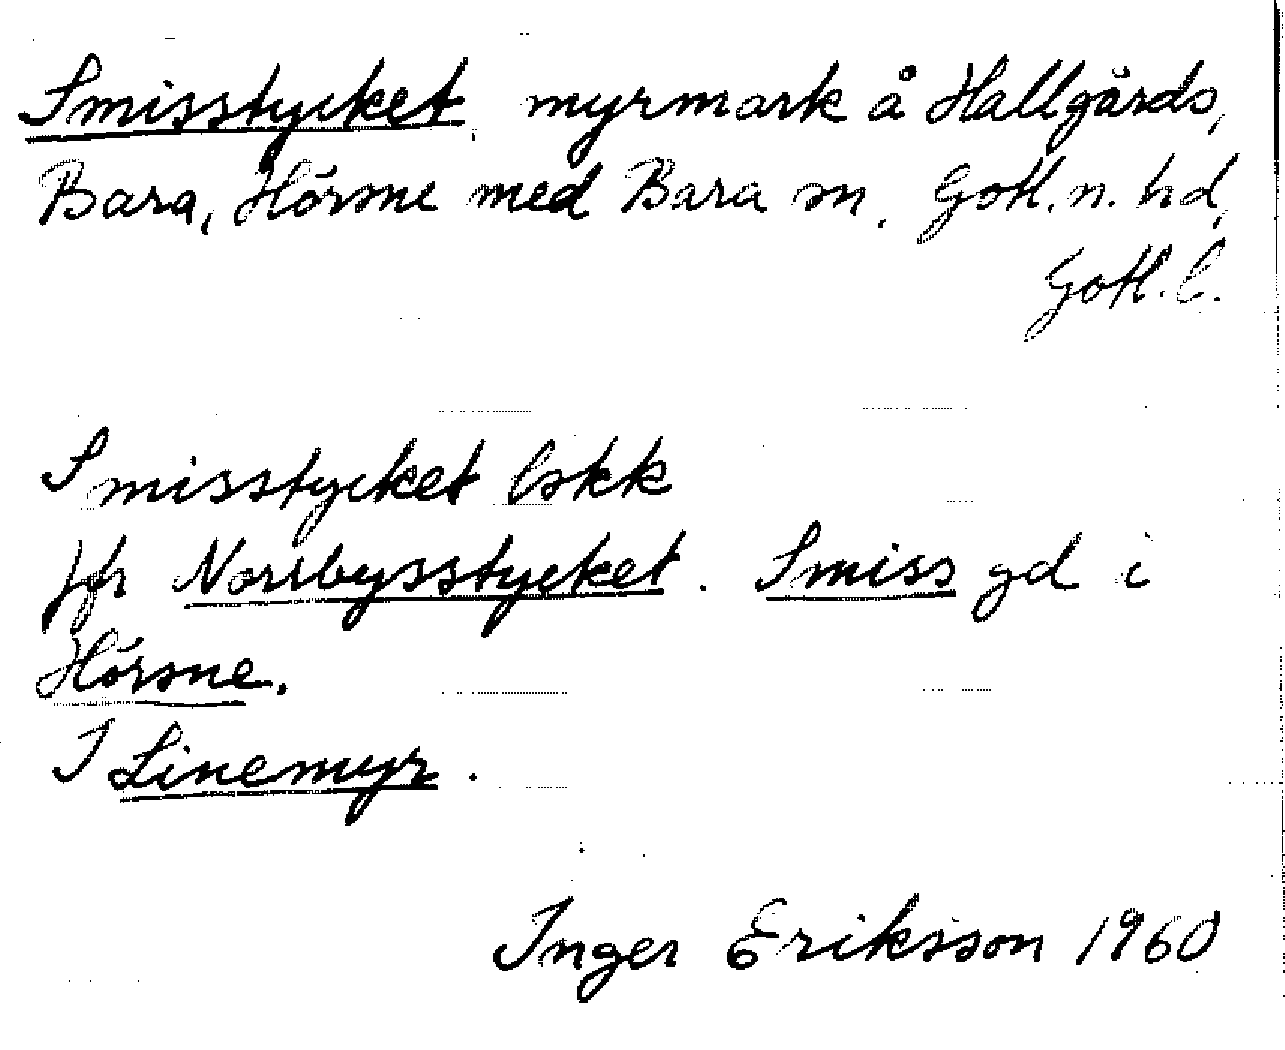 Smisstycket, myrmark å Hallgårds,
Bara, Hörsne med Bara sn, Gotl. n. hd,
Gotl. l.
Smisstycket lskk
jfr Norrbysstycket. Smiss gd i
Hörsne.
I Linemyr.
Inger Eriksson 1960